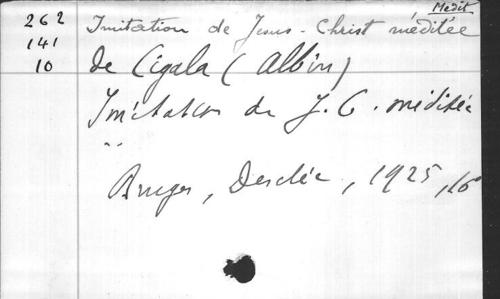 Médit
262 Imitation de Jesus-Christ méditée
141 de Cigala (Albin)
10 Imitation de J. C. méditée
"
Bruges, Desclée, 1925, 16°